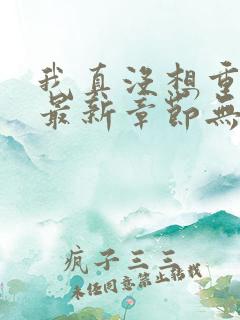 我真没想重
最新章節無
疯子三三
未经同意禁止转载